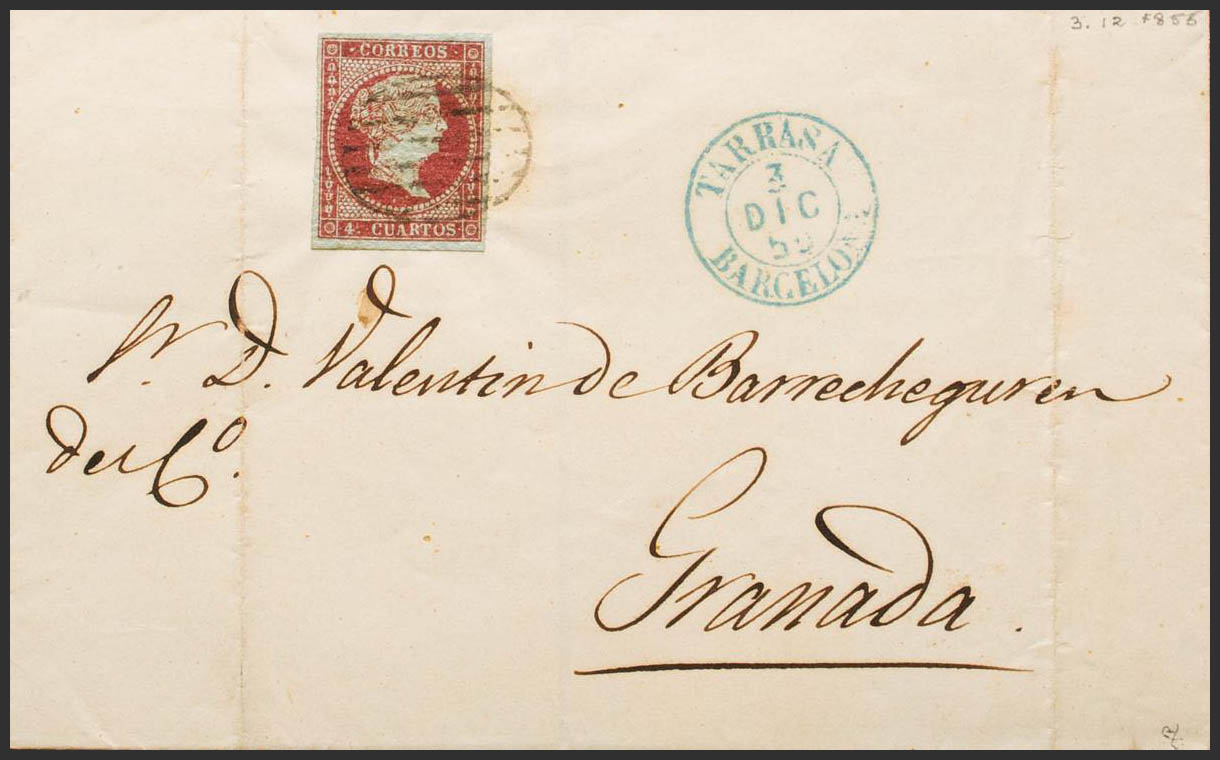 3. 12 1855
· CORREOS ·
4 CUARTOS
TARRASA
3
DIC
BARCELONA
Sr. D. Valentin de Barrecheguren
del Co.
Granada.